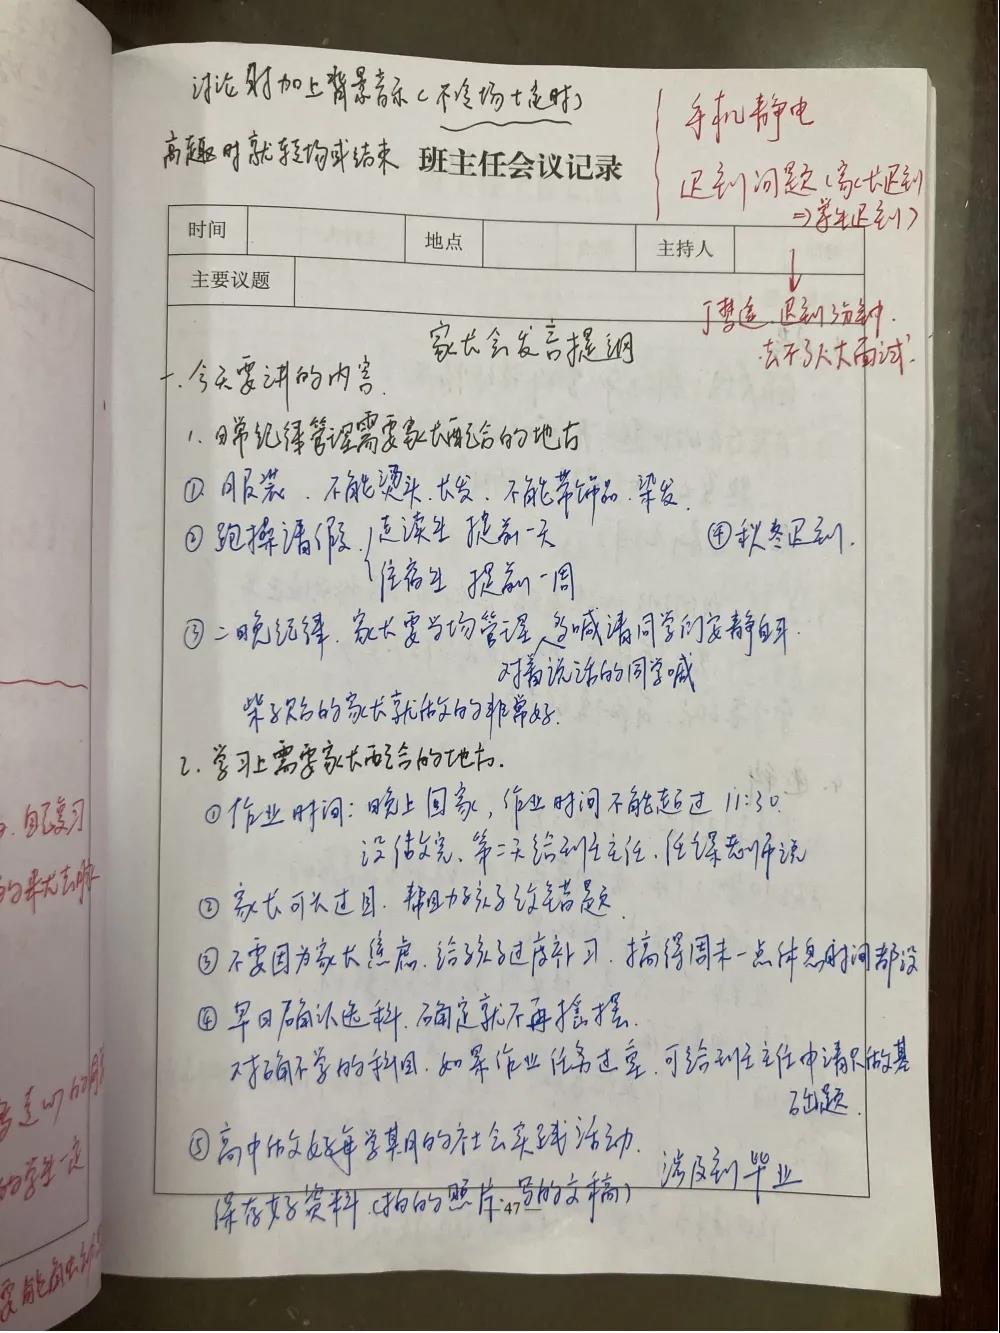 讨论时加上背景音乐(不冷场+定时)
高趣时就转场或结束
手机静电
迟到问题(家长迟到
=>学生迟到)
班主任会议记录
时间 地点 主持人
主要议题
迟到3分钟.
去不了人大面试.
家长会发言提纲
一.今天要讲的内容.
1.日常纪律管理需要家长配合的地方
①服装.不能烫头.长发.不能带饰品.染发.
②跑操请假 走读生 提前一天
④秋冬迟到.
住宿生 提前一周
③二晚纪律.家长要当场管理 喊请同学们安静自习.
对着说话的同学喊
的家长就做的非常好.
2.学习上需要家长配合的地方.
①作业时间:晚上回家,作业时间不能超过11:30.
没做完、第二天给班主任、任课老师说
②家长可以过目.帮助孩子改错题.
③不要因为家长焦虑.给孩子过度补习.搞得周末一点休息时间都没
④早日确认选科.确定就不再摇摆.
对确不学的科目.如果作业任务过重.可给班主任申请只做基
础题.
⑤高中做好每学期的社会实践活动.
涉及到毕业
保存好资料(拍的照片.写的文稿)
47
自己复习
的来龙去脉
的学生一定